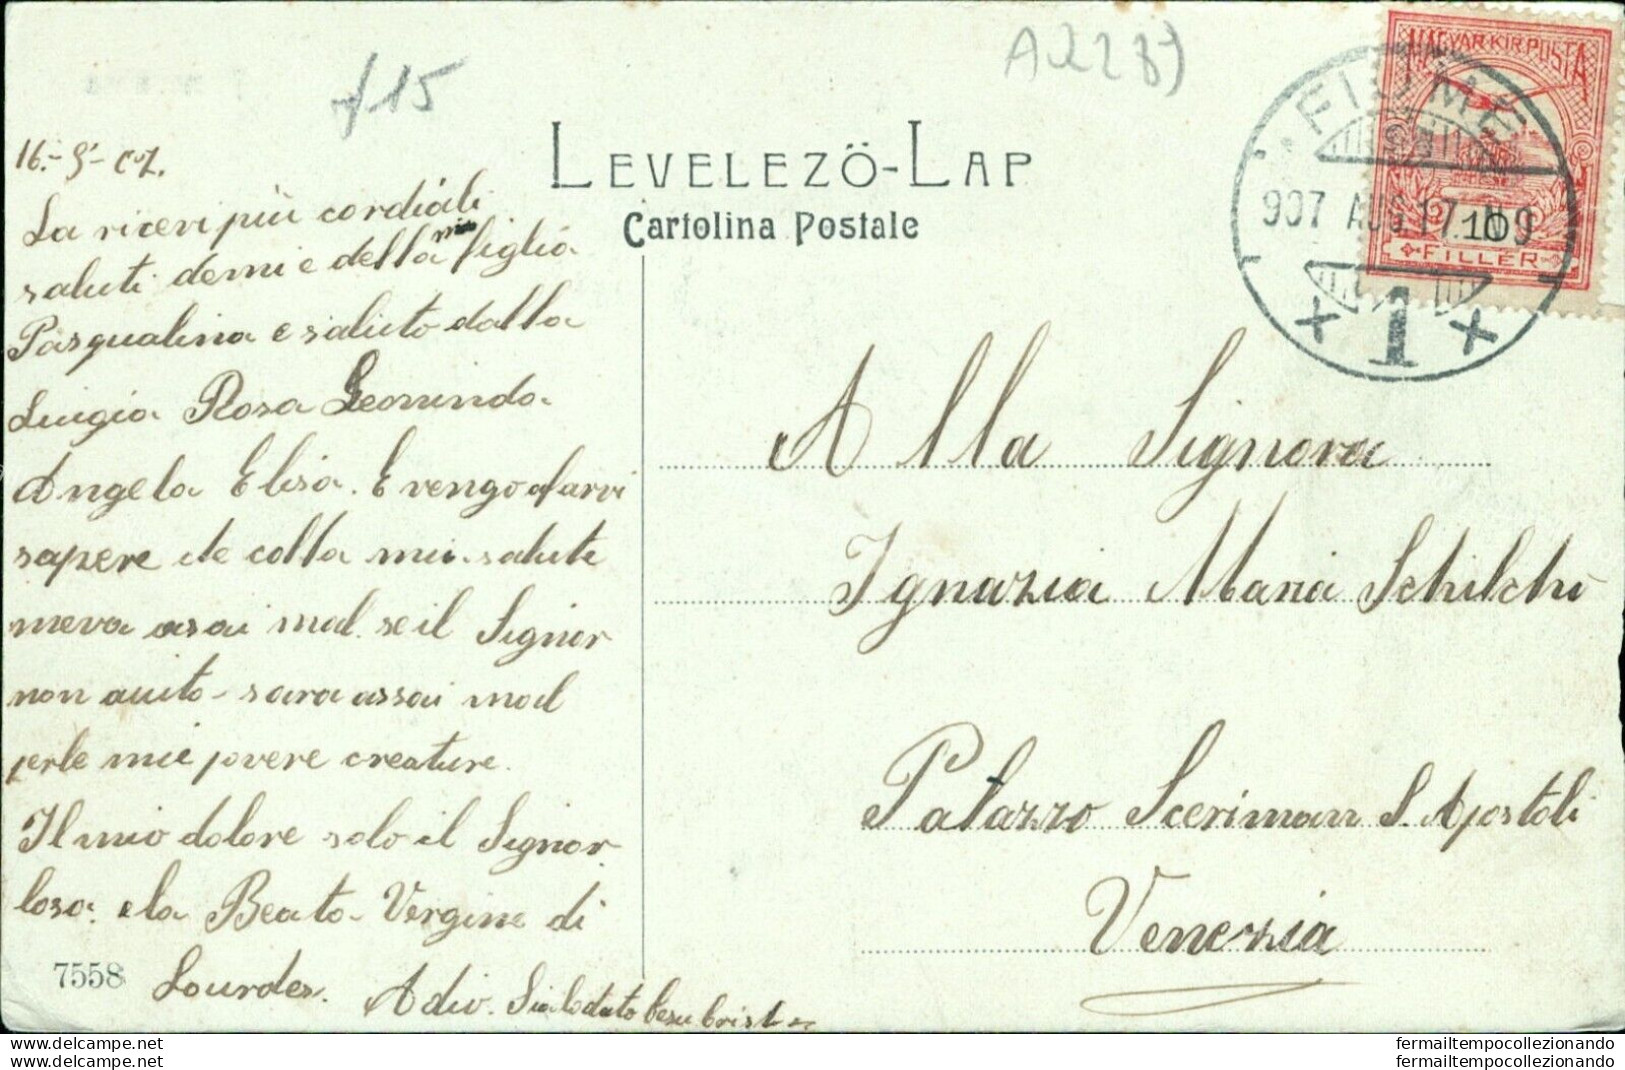 A2289
£15
MAGYAR KIR. POSTA
10
FILLÉR
FIUME
907 AUG 17. N 9
1
LEVELEZÖ-LAP
Cartolina Postale
16.-8-07.
La ricevi più cordiali
saluti demi e della mia figlia
Pasqualina e saluto dalla
Luigia Rosa Leoninda
Angela Elisa. E vengo a farvi
sapere de colla mia salute
meva asai mal. se il Signor
non auito - sara assai mal
perle mie povere creature.
Il mio dolore solo il Signor
losa. e la Beata Vergine di
Lourdes. Adio. Sia lodato Gesu Cristo
7558
Alla Signora
Ignazia Maria Schilchi
Palazzo Sceriman S. Apostoli
Venezia
fermailtempocollezionando
fermailtempocollezionando
delcampe.net
delcampe.net